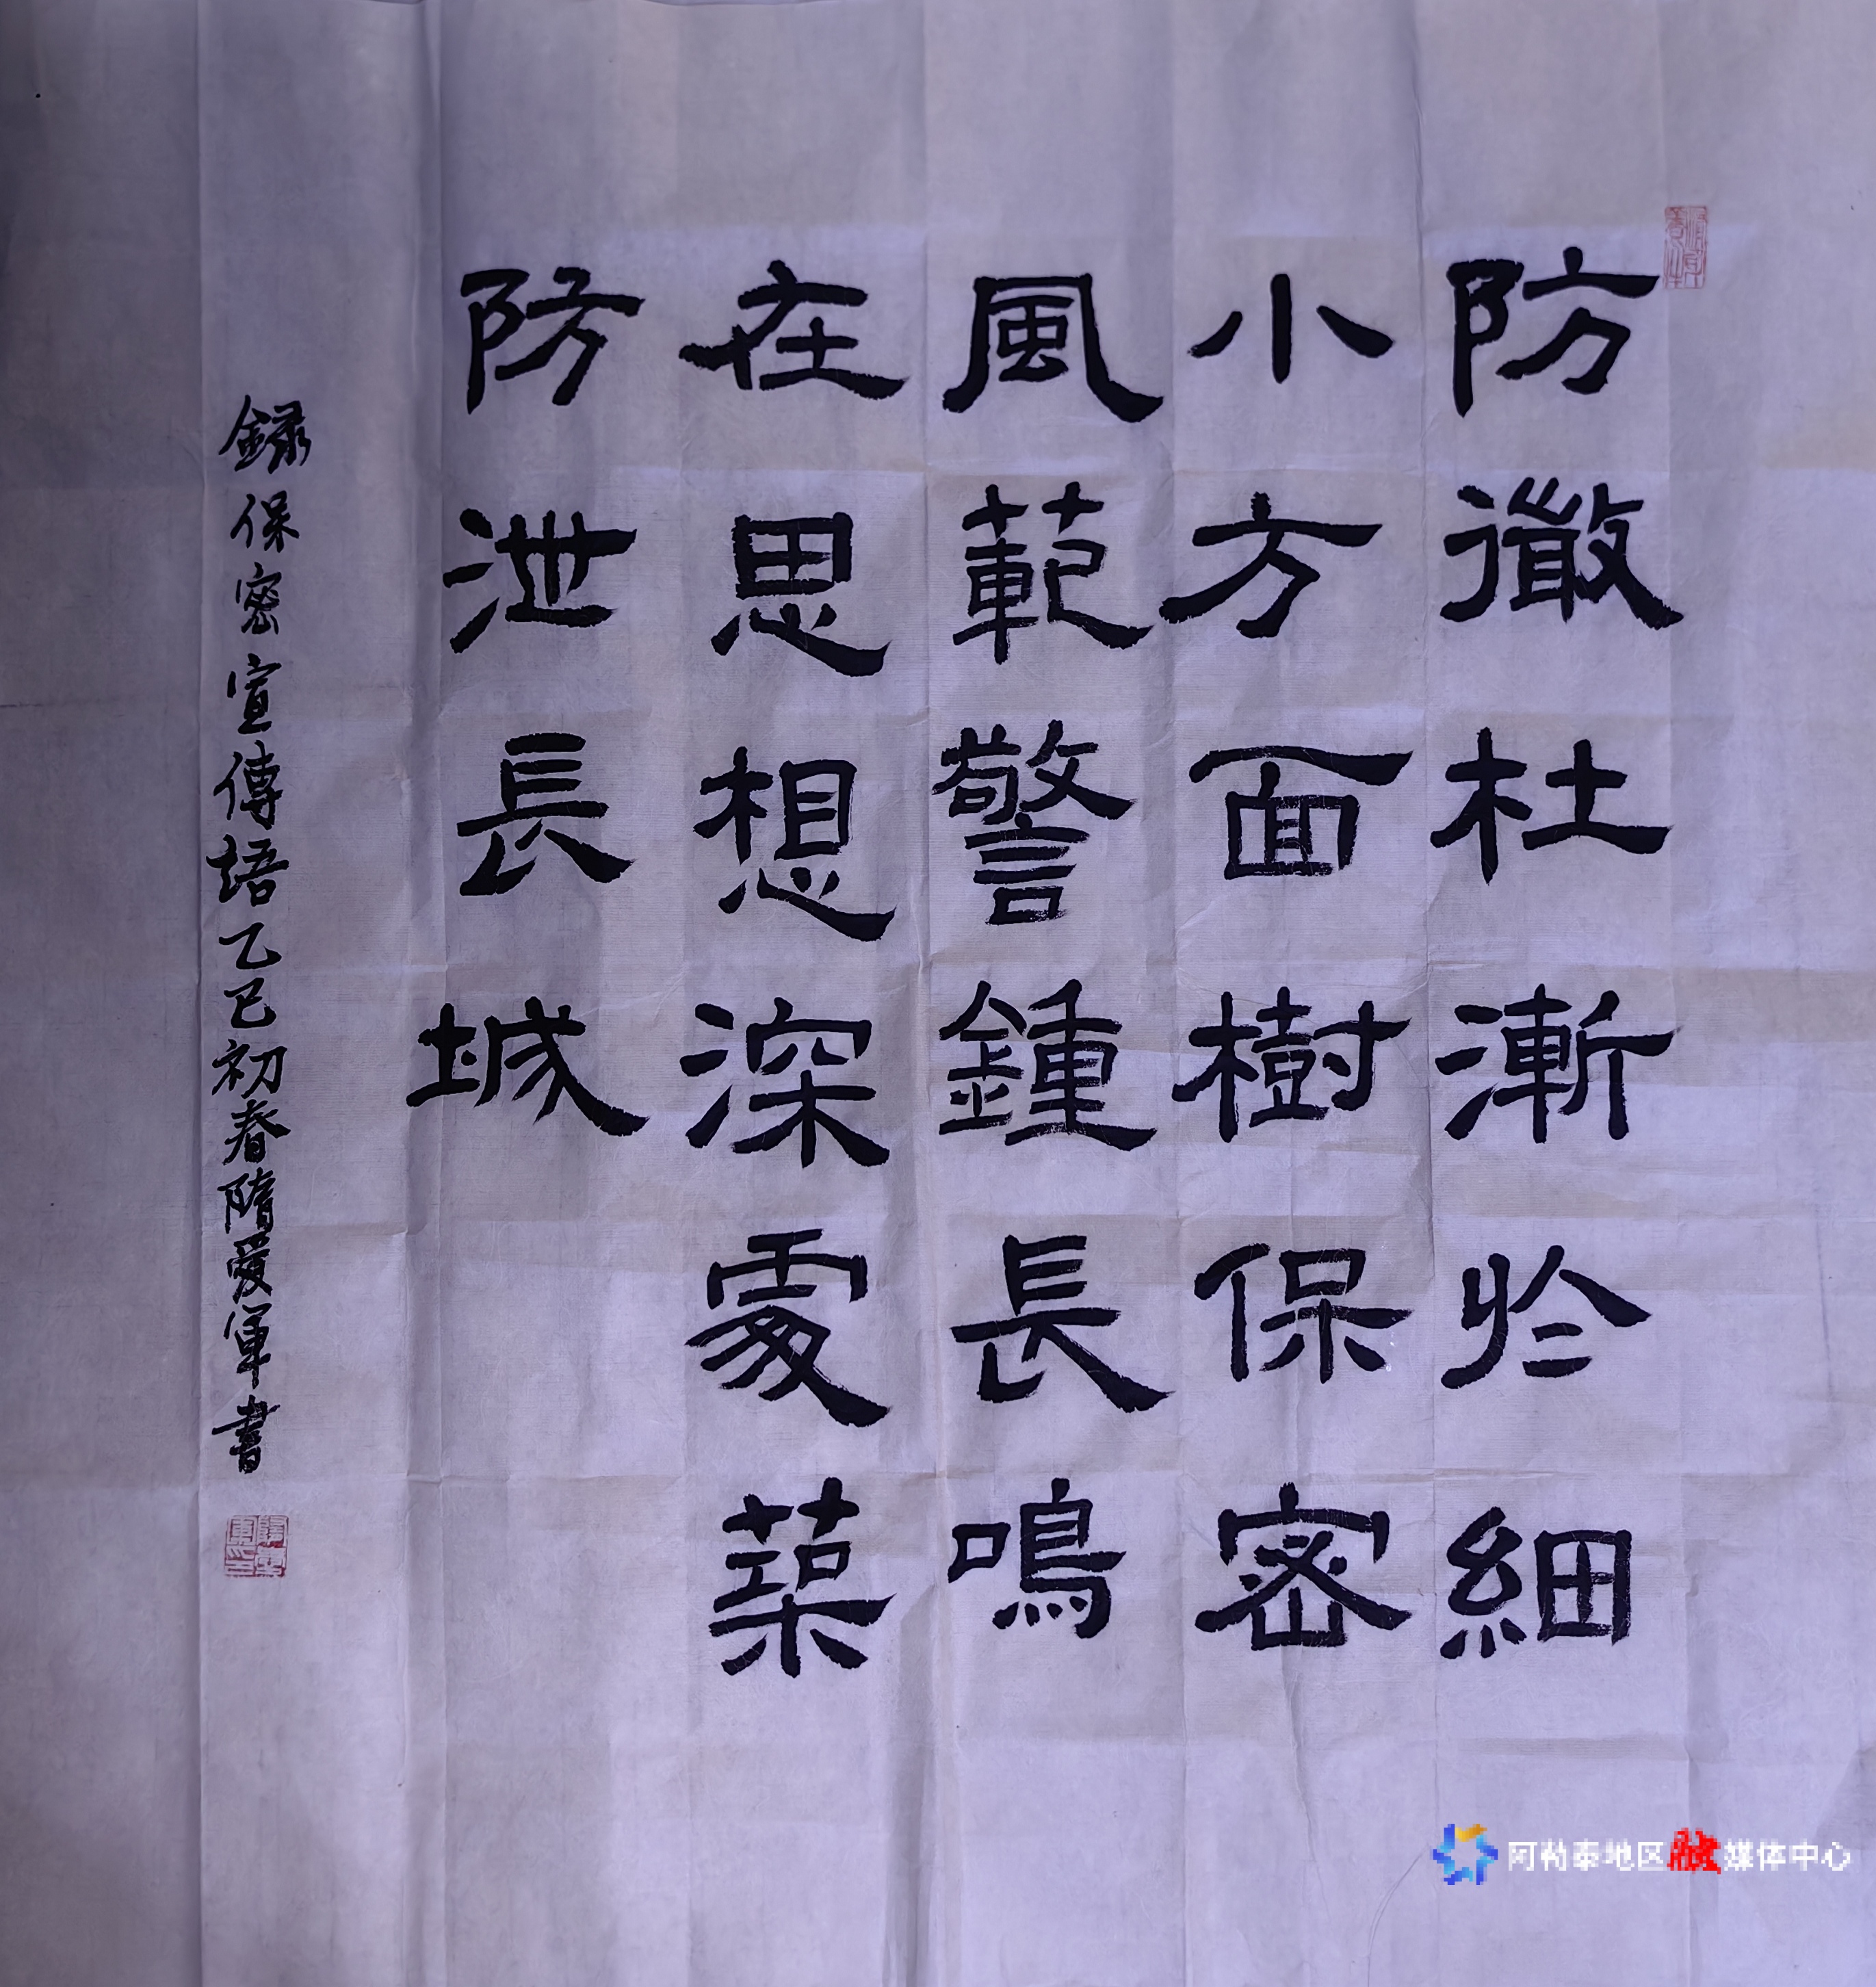 防微杜漸於細
小方面樹保密
風範警鍾長鳴
在思想深處築
防泄長城
錄保密宣傳語乙巳初春隋愛軍書
阿勒泰地区融媒体中心